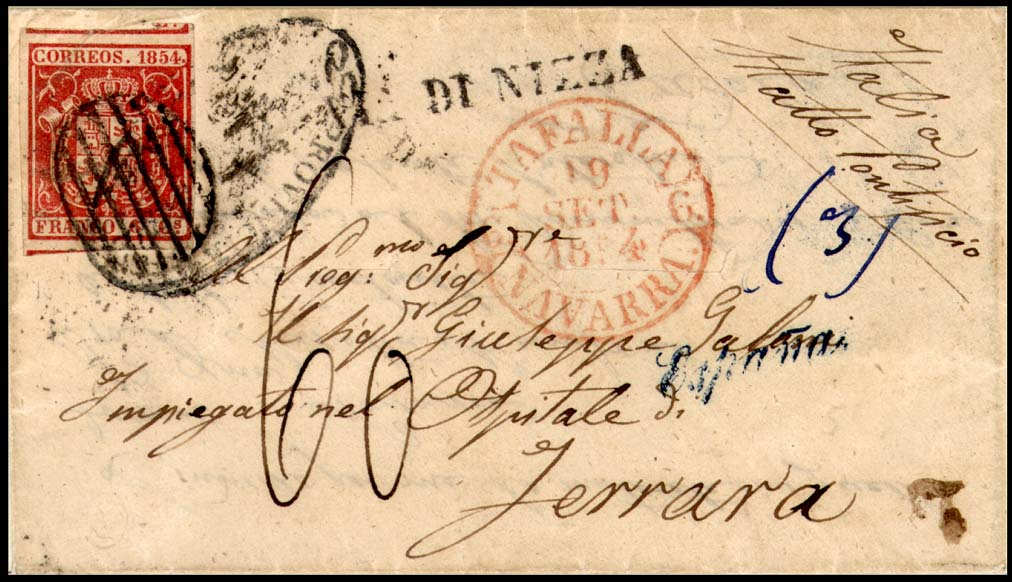 CORREOS. 1854.
FRANCO 6 Cs
DI NIZZA
TAFALLA
19
SET
1854
NAVARRA
Italia
Statto Pontificio
(3)
Al Preg.mo Sig.re
Il Sigr Giuseppe
España
Impiegato nel Ospitale di
Ferrara
60